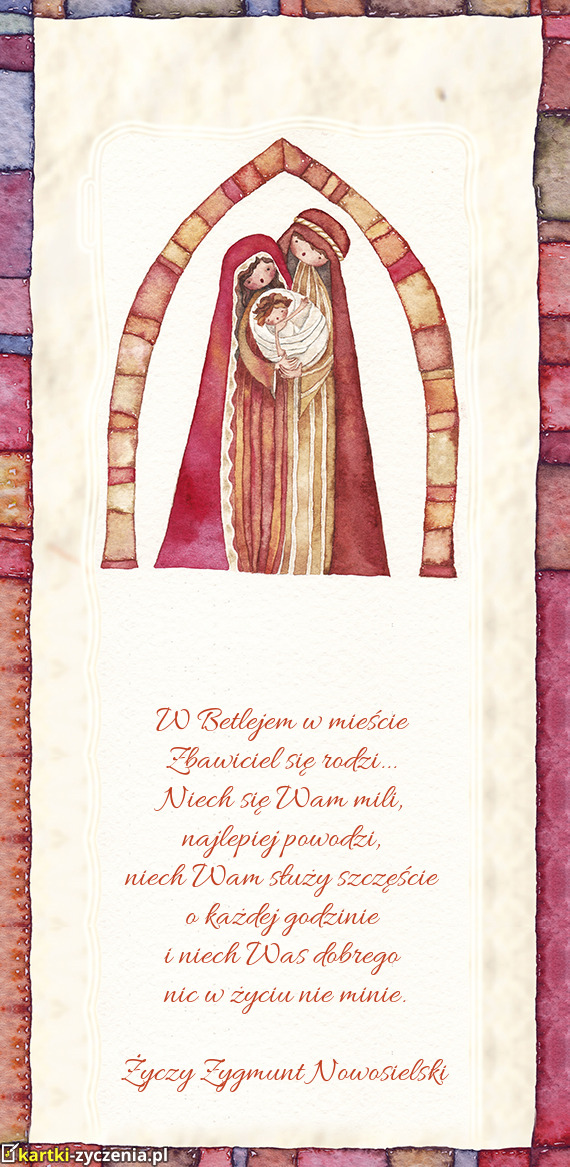 W Betlejem w mieście
Zbawiciel się rodzi...
Niech się Wam mili,
najlepiej powodzi,
niech Wam służy szczęście
o każdej godzinie
i niech Was dobrego
nic w życiu nie minie.
Życzy Zygmunt Nowosielski
kartki-zyczenia.pl